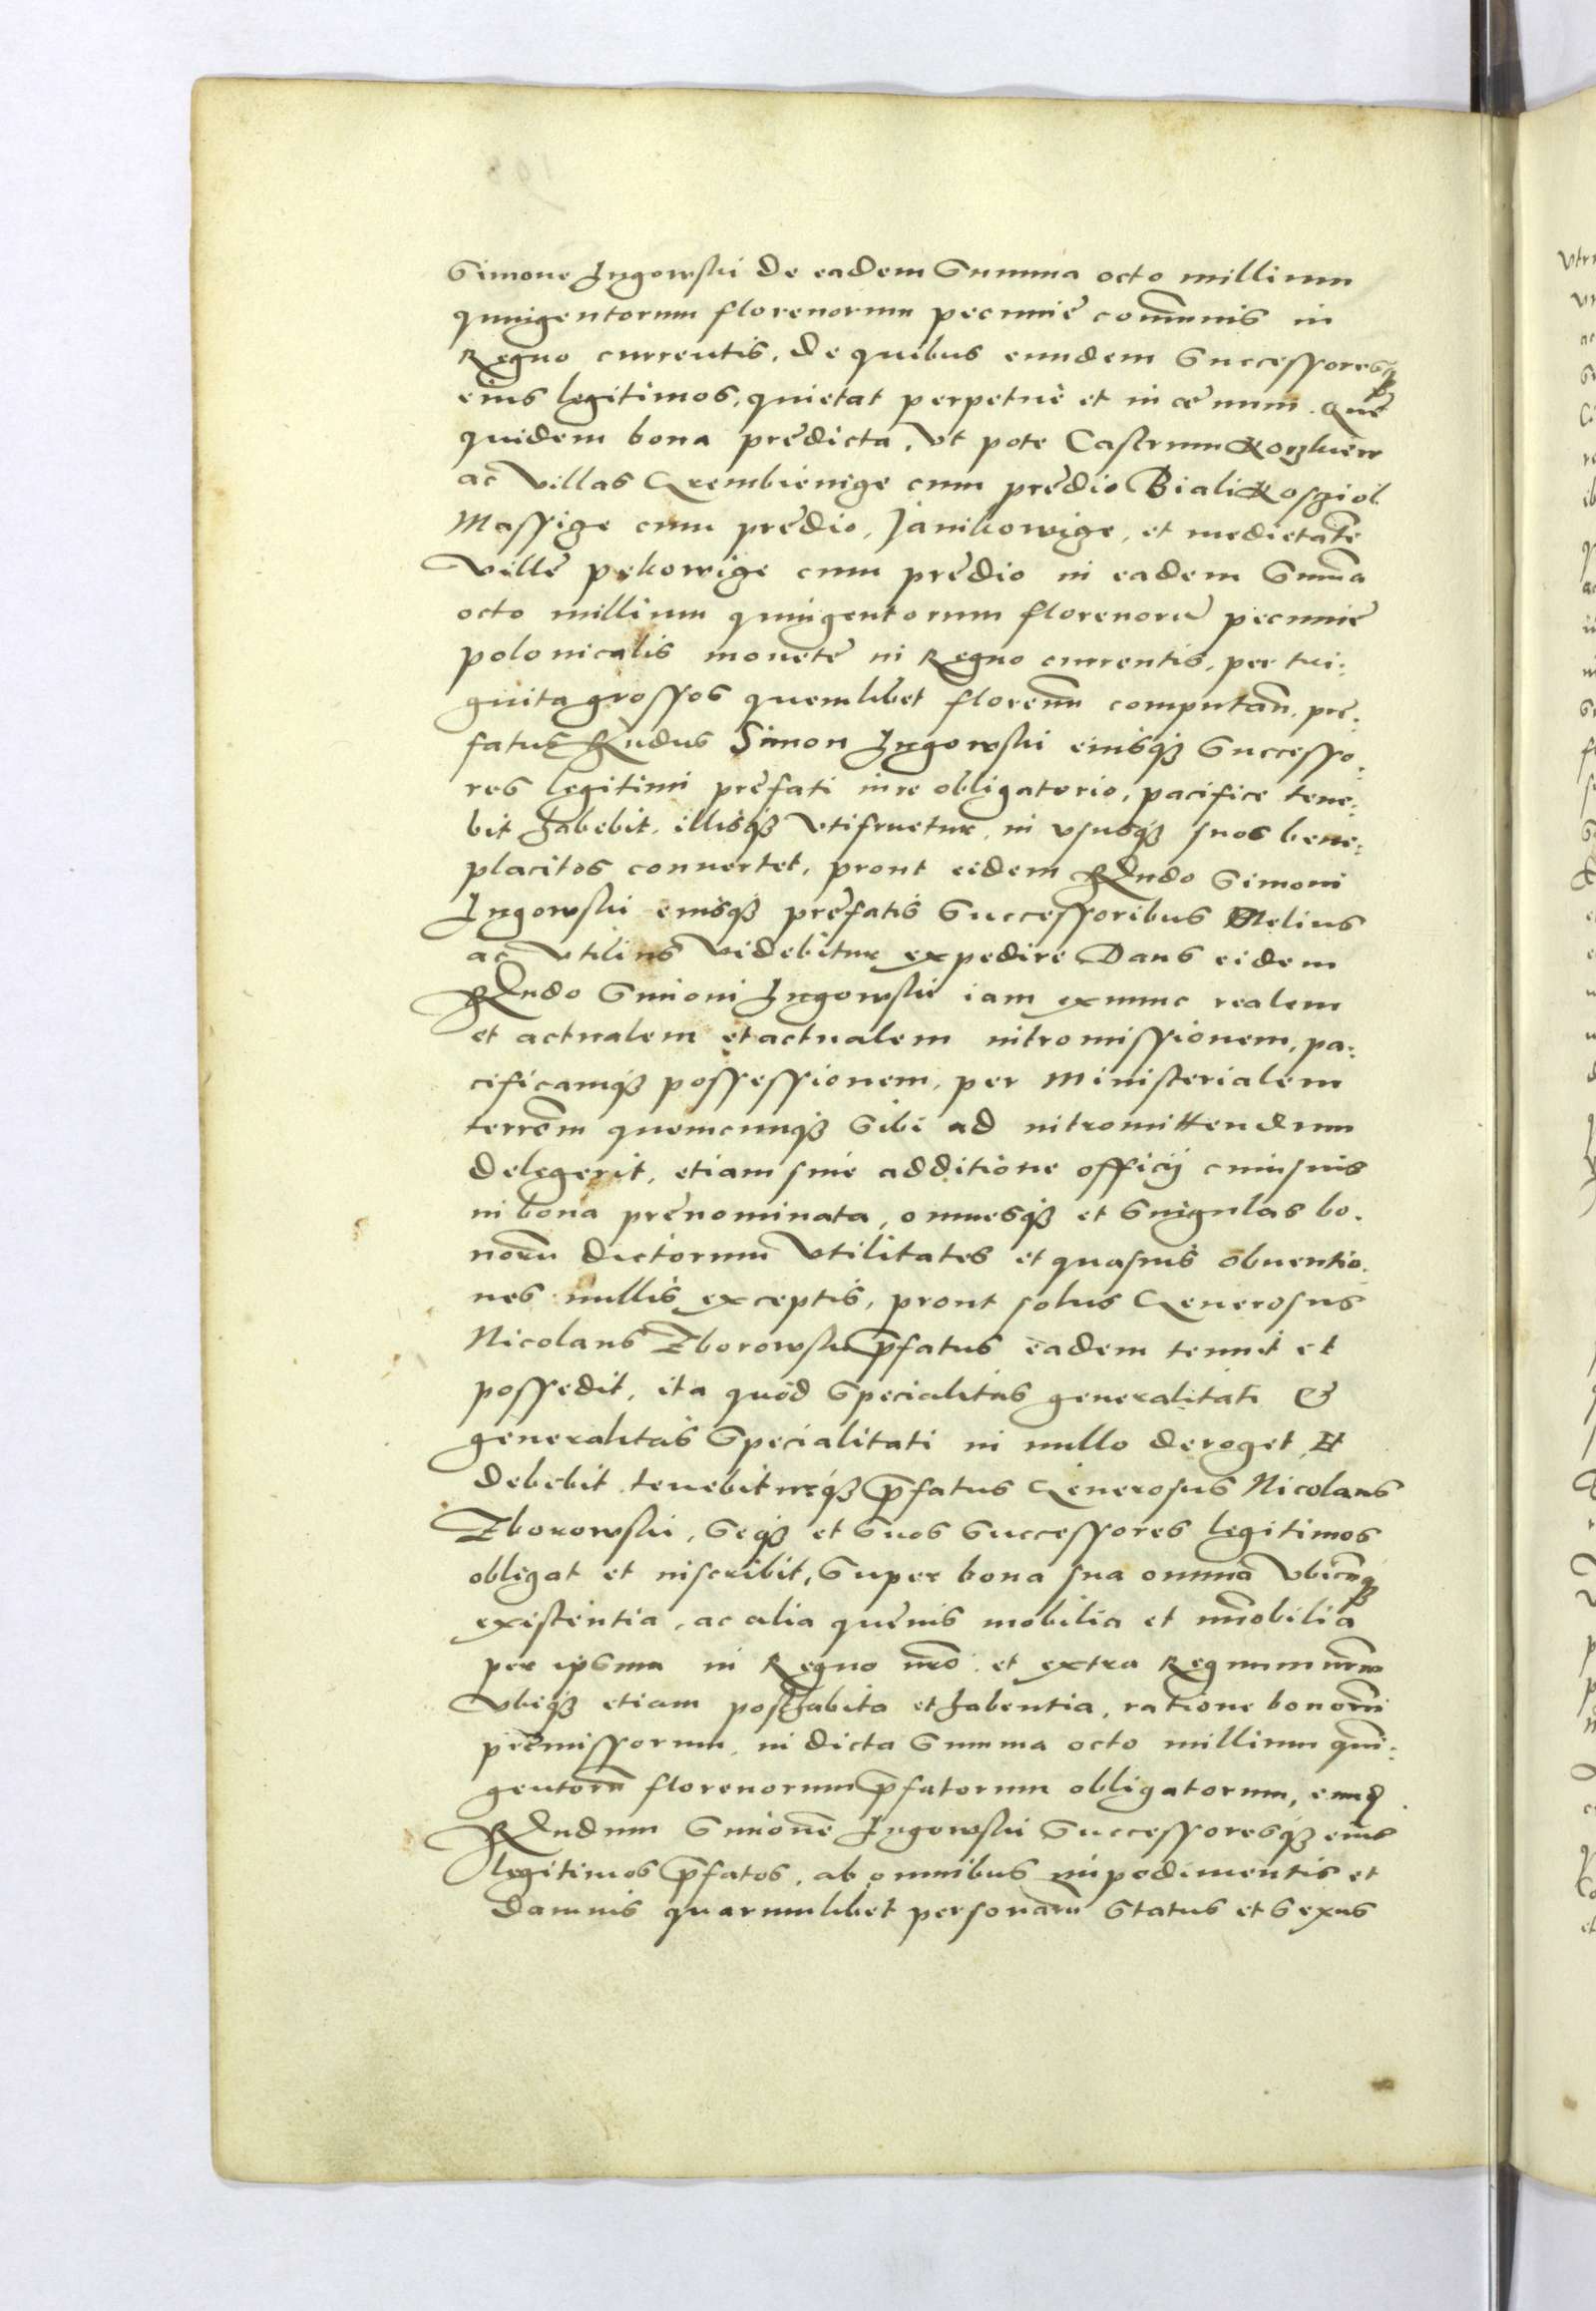 Simone Jugowski de eadem Summa octo millium
quingentorum florenorum pecunie com̄unis in
Regno currentis. de quibus eundem Successoresq₃
eius legitimos, quietat perpetue et in ęvum. Que
quidem bona predicta, Vt pote Castrum
ac Villas Grembienige cum predio Biali Kosziol
Massige cum predio, Janikowige, et medietatē
Ville pękowige cum predio in eadem Summa
octo millium quingentorum florenorū pecunie
polonicalis monete in Regno currentis, per tri:
ginta grossos quemlibet florenum computan̄. pre:
fatus Rn̄dus Simon Jugowski eiusq₃ Successo:
res legitimi prefati iure obligatorio, pacifice tene:
bit habebit. illisq₃ vtifruetur, in vsusq₃ suos bene:
placitos conuertet, prout eidem Rn̄do Simoni
Jugowski eiusq₃ prefatis Successoribus Melius
ac Vtilius Videbitur expedire Dans eidem
Rn̄do Simoni Jugowski iam exnunc realem
et actualem et actualem intromissionem, pa:
cificamq₃ possessionem, per Ministerialem
terrēm quemcunq₃ Sibi ad intromittendum
delegerit, etiam sine additione officij cuiusuis
in bona prenominata, omnesq₃ et Singulas bo:
norū dictorum Vtilitates et quasuis obuentio:
nes nullis exceptis, prout solus Generosus
Nicolaus Zborowski p̄fatus eadem tenuit et
possedit, ita quod Specialitas generalitati &
generalitas Specialitati in nullo deroget Et
debebit tenebiturq₃ p̄fatus Generosus Nicolaus
Zborowski, Seq₃ et Suos Successores legitimos
obligat et inscribit, Super bona sua omnia Vbicunq₃
existentia, ac alia queuis mobilia et im̄obilia
per ipsum in Regno nr̄o et extra Regnum nr̄m
Vbiq₃ etiam posthabita et habentia, ratione bonorū
premissorum, in dicta Summa octo millium quin:
gentorū florenorum p̄fatorum obligatorum, eund̄
Rn̄dum Simonē Jugowski Successoresq₃ eius
legitimos p̄fatos, ab omnibus impedimentis et
damnis quarumlibet personarū Status et Sexus